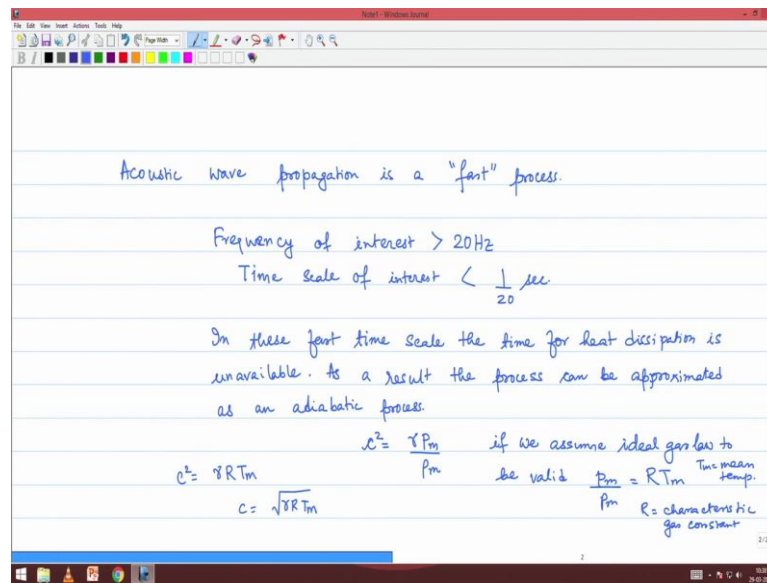 Note1 - Windows Journal
File Edit View Insert Actions Tools Help
Page Width
B I
Acoustic wave propagation is a "fast" process.
Frequency of interest > 20Hz
Time scale of interest < 1/20 sec.
In these fast time scale the time for heat dissipation is
unavailable. As a result the process can be approximated
as an adiabatic process.
c² = γPm/ρm if we assume ideal gas law to
be valid pm/ρm = RTm Tm = mean temp.
c² = γRTm
c = √γRTm
R = characteristic
gas constant
2